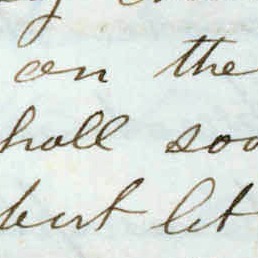 on the
hall soo
but let